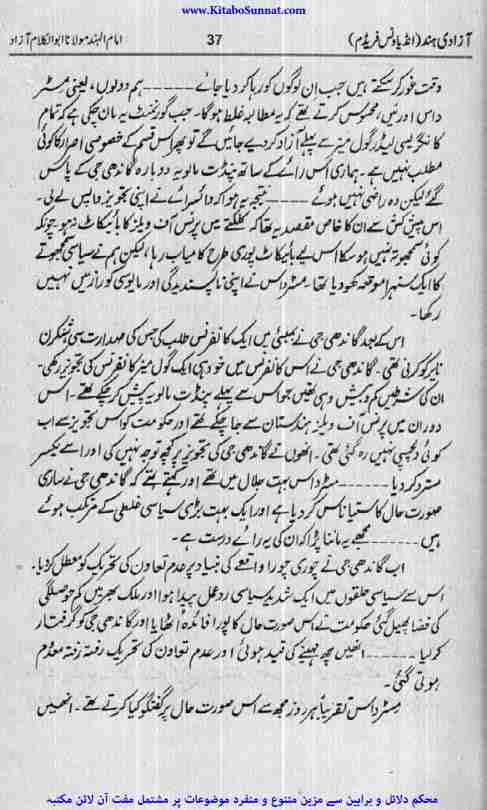 www.KitaboSunnat.com
آزادی ہند (انڈیا ونس فریڈم) 37 امام الہند مولانا ابوالکلام آزاد
وقت غور کر سکتے ہیں جب ان لوگوں کو رہا کر دیا جائے ----- ہم دونوں، یعنی مسٹر
داس اور میں، محسوس کرتے تھے کہ یہ مطالبہ غلط ہو گا۔ جب گورنمنٹ یہ مان چکی ہے کہ تمام
کانگریسی لیڈر گول میز سے پہلے آزاد کر دیے جائیں گے تو پھر اس قسم کے خصوصی اصرار کا کوئی
مطلب نہیں ہے۔ ہماری اس رائے کے ساتھ پنڈت مالویہ دوبارہ گاندھی جی کے پاس
گئے لیکن وہ راضی نہیں ہوئے ----- نتیجہ یہ ہوا کہ وائسرائے نے اپنی تجویز واپس لے لی۔
اس پیش کش سے ان کا خاص مقصد یہ تھا کہ کلکتے میں پرنس آف ویلز کا بائیکاٹ نہ ہو چونکہ
کوئی سمجھوتہ نہیں ہو سکا اس لیے بائیکاٹ پوری طرح کامیاب رہا، لیکن ہم نے سیاسی سمجھوتے
کا ایک سنہرا موقعہ کھو دیا تھا۔ مسٹر داس نے اپنی ناپسندیدگی اور مایوسی کو راز میں نہیں
رکھا۔
اس کے بعد گاندھی جی نے بمبئی میں ایک کانفرنس طلب کی جس کی صدارت سی شنکرن
نایر کو کرنی تھی۔ گاندھی جی نے اس کانفرنس میں خود ہی ایک گول میز کانفرنس کی تجویز رکھی۔
ان کی شرطیں کم و بیش وہی تھیں جو اس سے پہلے پنڈت مالویہ پیش کر چکے تھے۔ اس
دوران میں پرنس آف ویلز ہندستان سے جا چکے تھے اور حکومت کو اس تجویز سے اب
کوئی دلچسپی نہیں رہ گئی تھی۔ انھوں نے گاندھی جی کی تجویز پر کچھ توجہ نہیں کی اور اسے یکسر
مسترد کر دیا ----- مسٹر داس بہت جلال میں تھے اور کہتے تھے کہ گاندھی جی نے ساری
صورت حال کا ستیاناس کر دیا ہے اور ایک بہت بڑی سیاسی غلطی کے مرتکب ہوئے
ہیں ----- مجھے یہ ماننا پڑا کہ ان کی یہ رائے درست ہے۔
اب گاندھی جی نے چوری چورا واقعے کی بنیاد پر عدم تعاون کی تحریک کو معطل کر دیا۔
اس سے سیاسی حلقوں میں ایک شدید سیاسی ردعمل پیدا ہوا اور ملک بھر میں کم حوصلگی
کی فضا پھیل گئی حکومت نے اس صورت حال کا پورا فائدہ اٹھایا اور گاندھی جی کو گرفتار
کر لیا ----- انھیں چھ مہینے کی قید ہوئی اور عدم تعاون کی تحریک رفتہ رفتہ معدوم
ہوتی گئی۔
مسٹر داس تقریباً ہر روز مجھ سے اس صورت حال پر گفتگو کیا کرتے تھے۔ انھیں
محکم دلائل و براہین سے مزین متنوع و منفرد موضوعات پر مشتمل مفت آن لائن مکتبہ